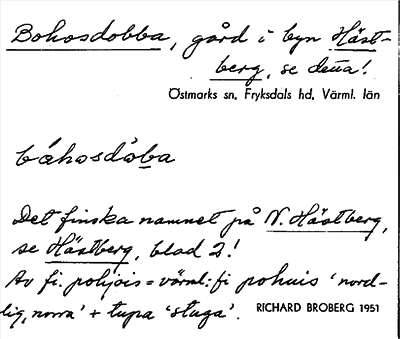 Bohosdobba, gård i byn Häst-
berg, se deña!
Östmarks sn, Fryksdals hd, Värml. län
båhosdåba
Det finska namnet på N. Hästberg,
se Hästberg, blad 2!
Av fi. pohjois = värml: fi pohuis 'nord-
lig, norra' + tupa 'stuga'.
RICHARD BROBERG 1951